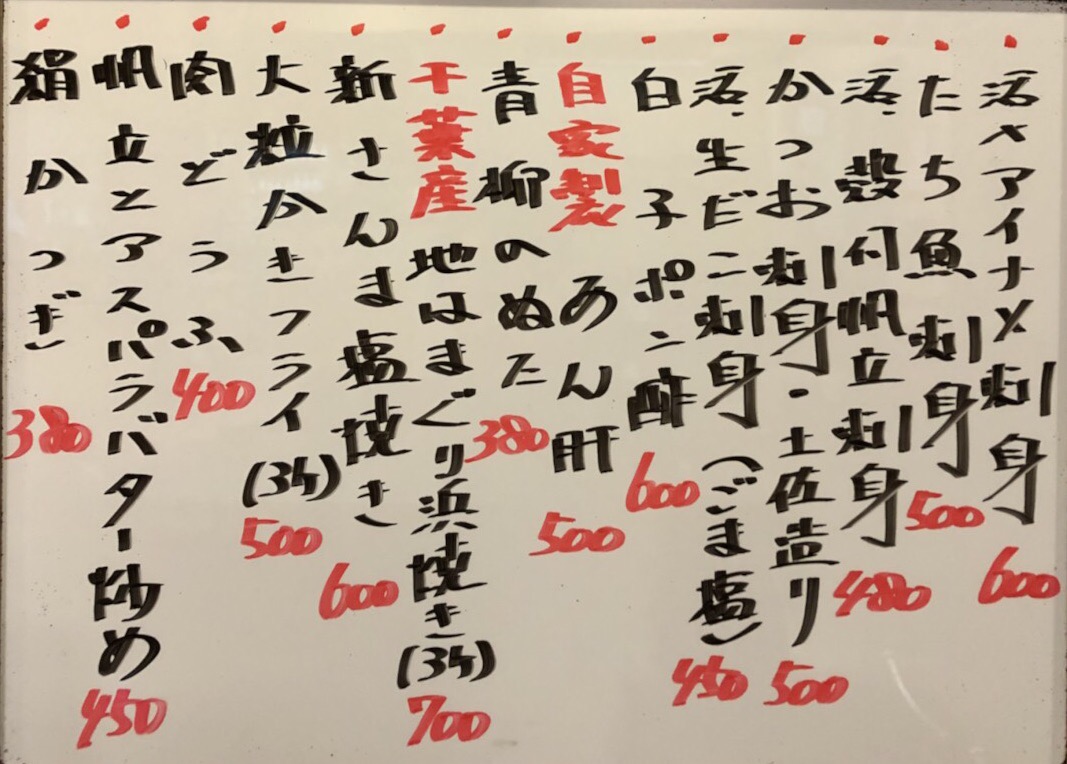 活〆アイナメ刺身 600
たち魚刺身 500
活、殻付帆立刺身 480
かつお刺身・土佐造り 500
活、生だこ刺身(ごま塩) 450
白子ポン酢 600
自家製あん肝 500
青柳のぬた 380
千葉産地はまぐり浜焼き(3ヶ) 700
新さんま塩焼き 600
大粒かきフライ(3ヶ) 500
肉どうふ 400
帆立とアスパラバター炒め 450
絹かつぎ 380